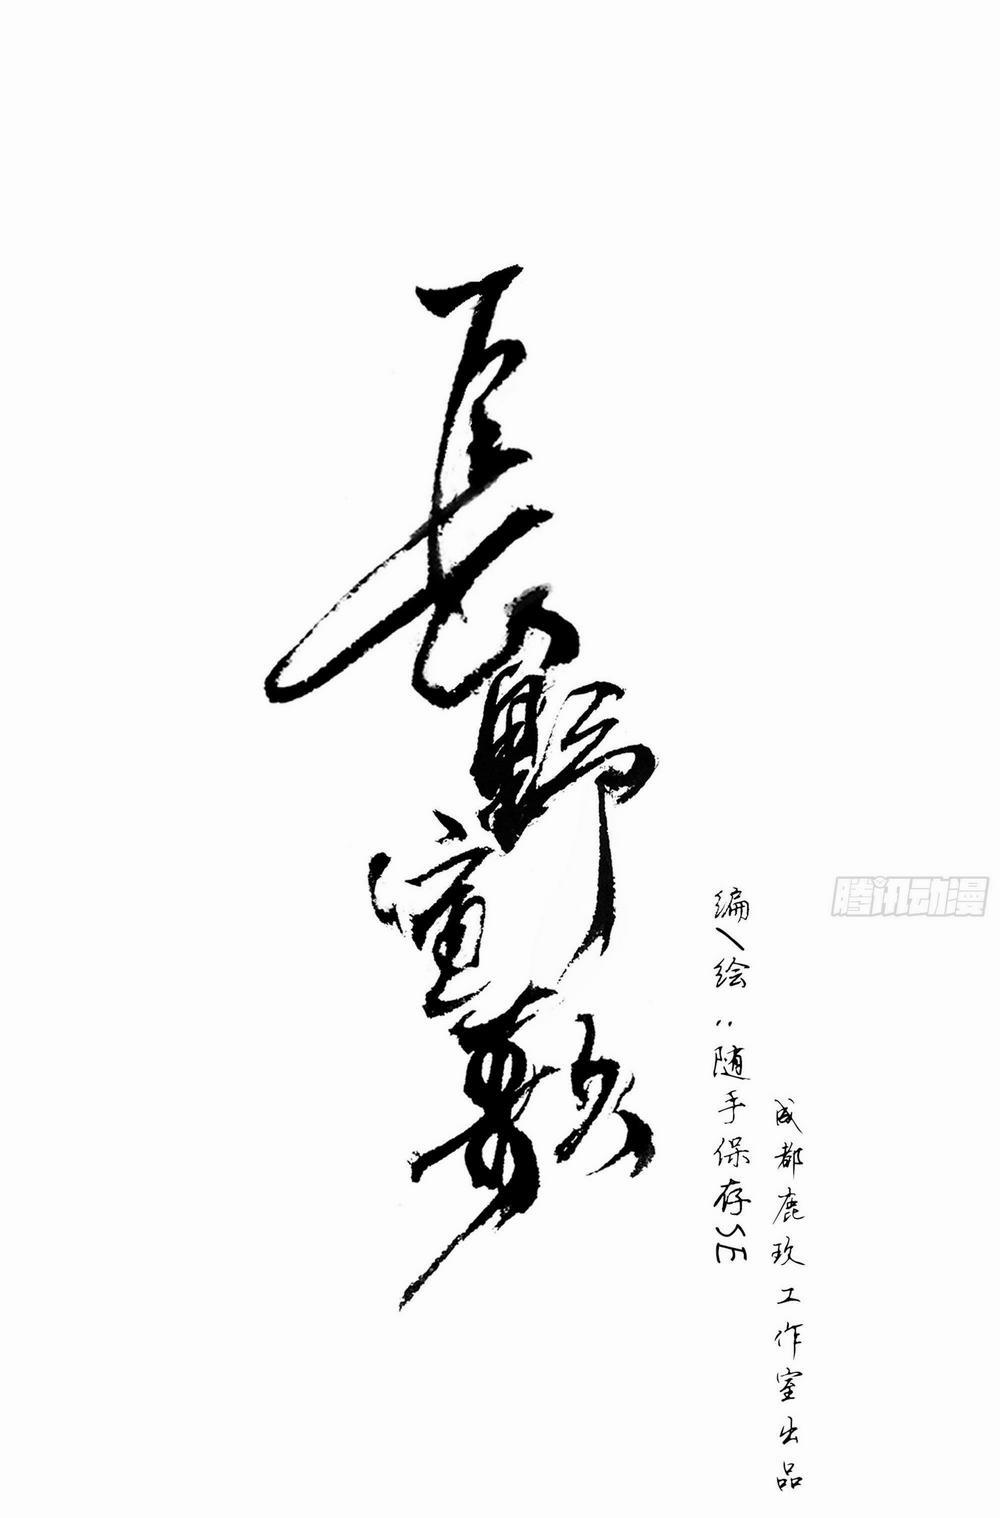 長野萱敷
编/绘:随手保存SE
成都鹿玖工作室出品
腾讯动漫